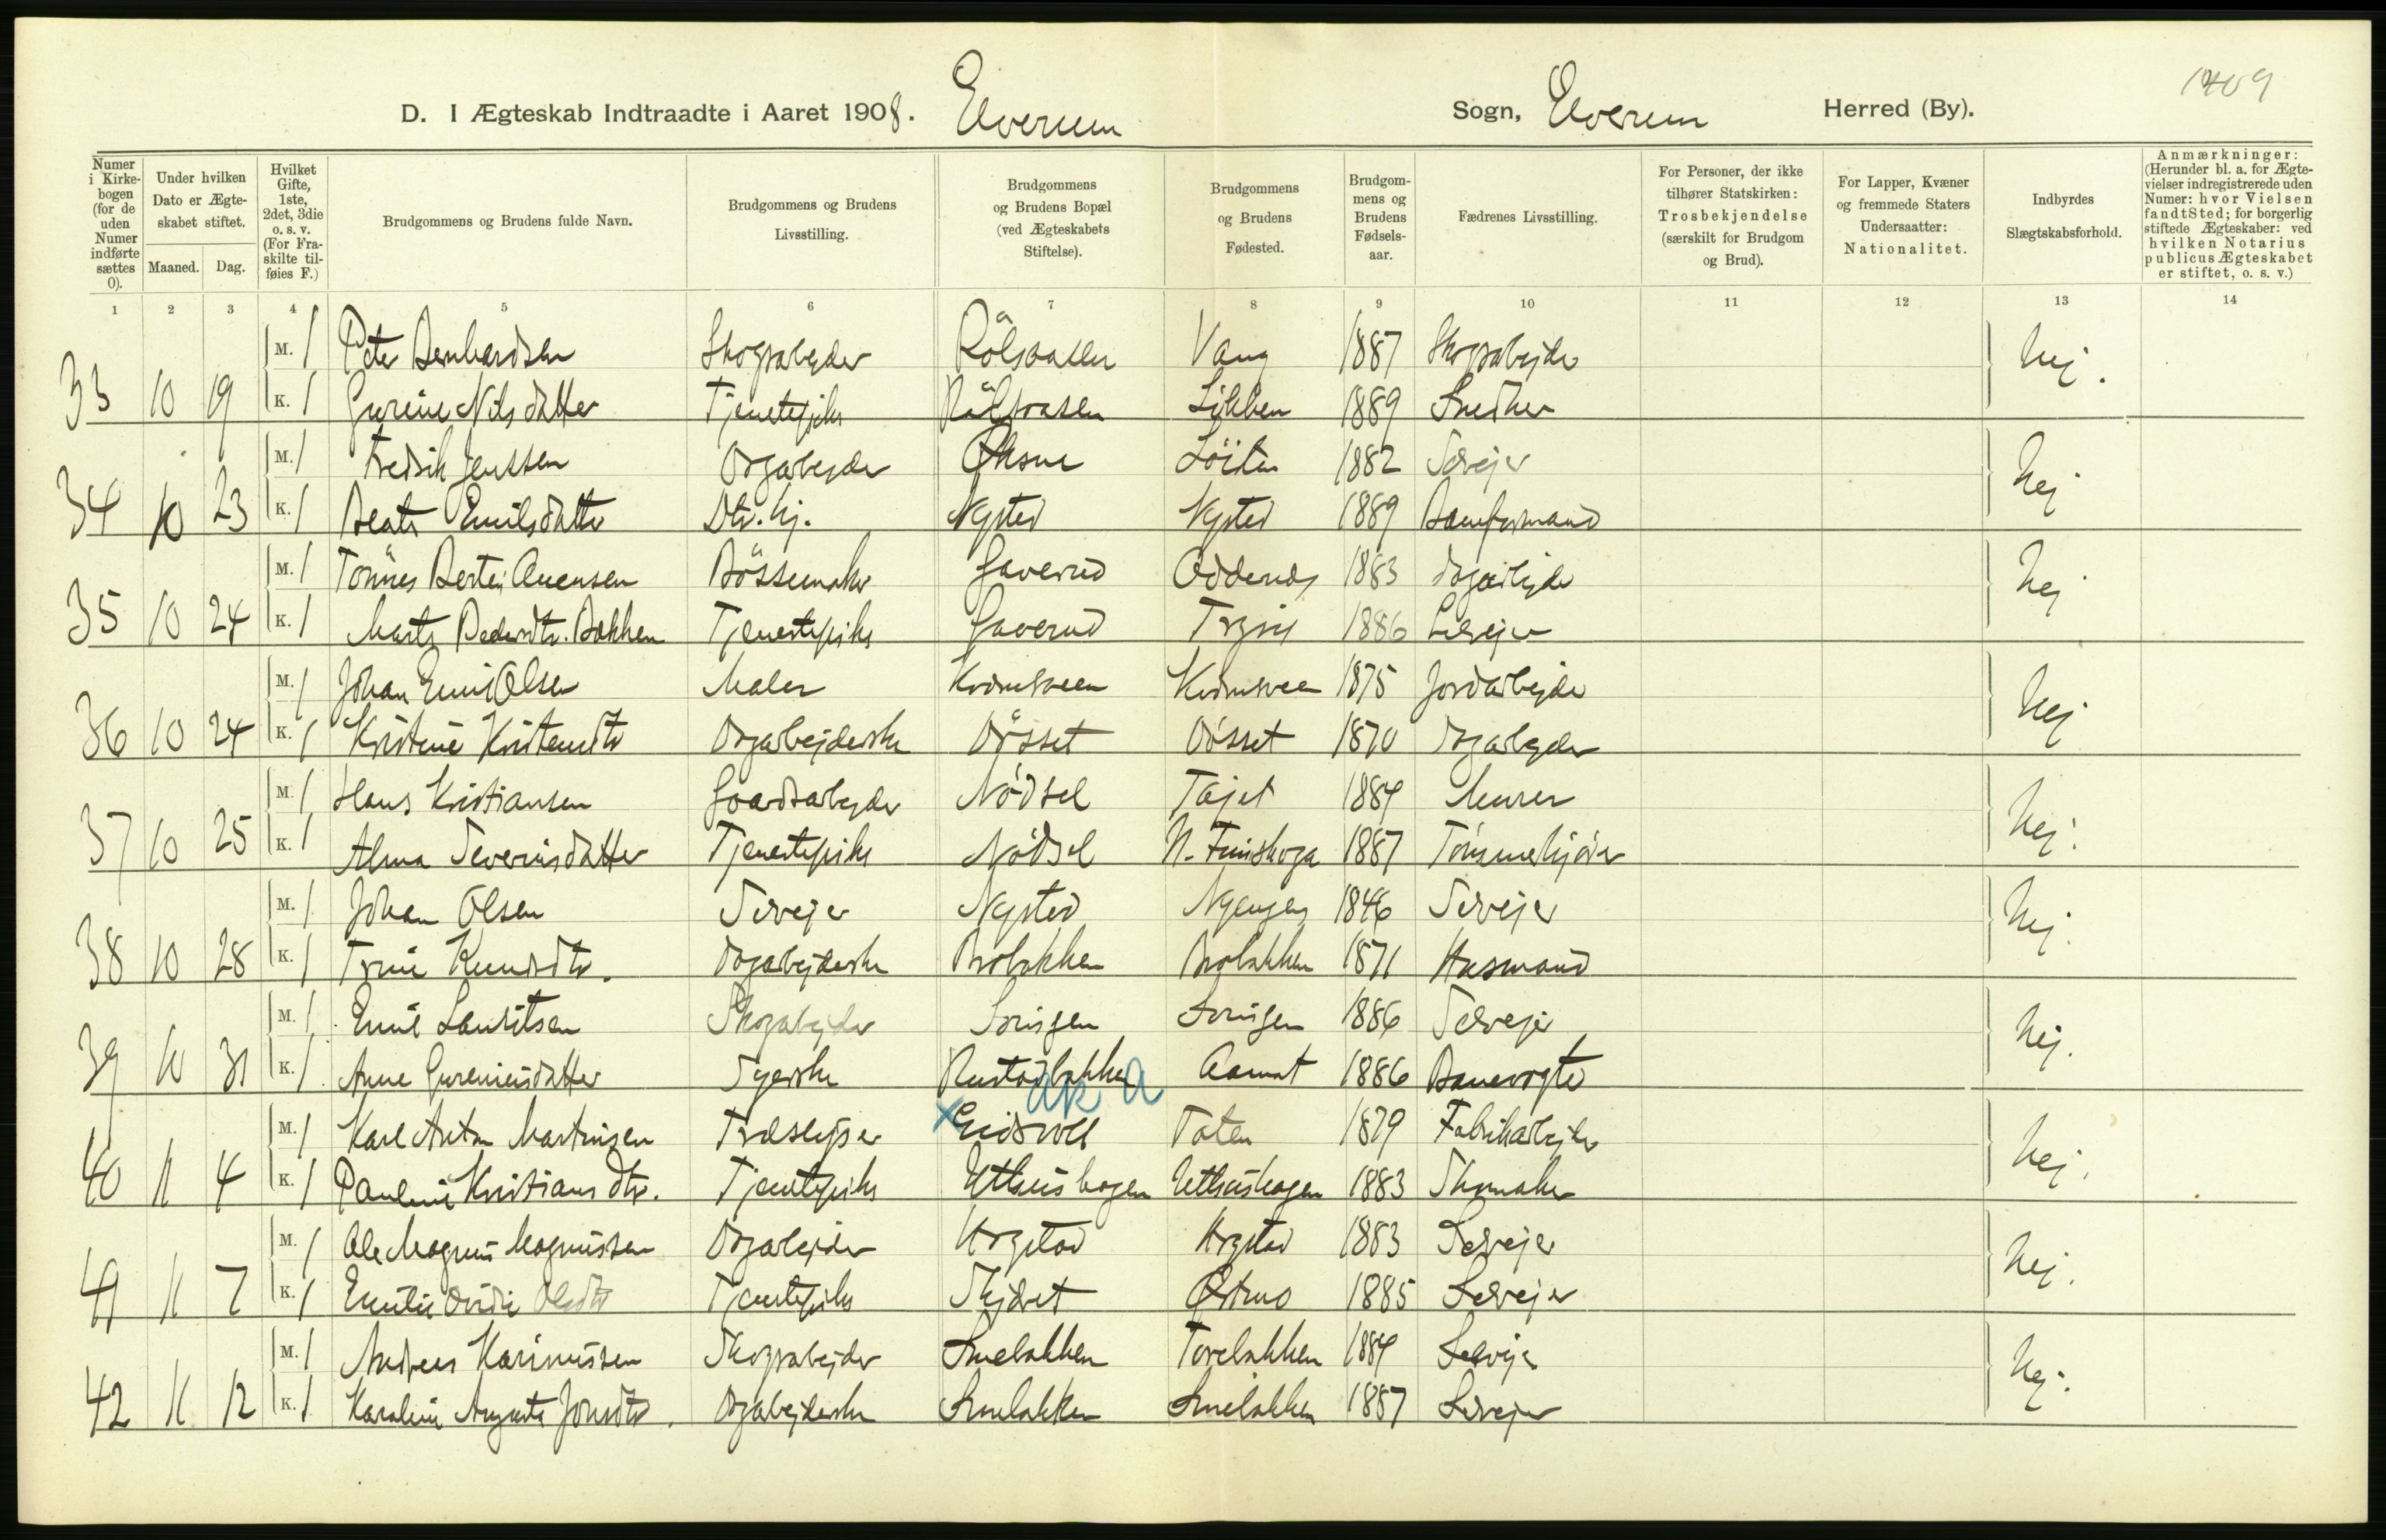 1409
D. I Ægteskab Indtraadte i Aaret 1908. Elverum Sogn, Elverum Herred (By).
Numer i Kirke-bogen (for de uden Numer indførte sættes 0).
Under hvilken Dato er Ægte-skabet stiftet.
Maaned. Dag.
Hvilket Gifte, 1ste, 2det, 3die o. s. v. (For Fra-skilte til-føies F.)
Brudgommens og Brudens fulde Navn.
Brudgommens og Brudens Livsstilling.
Brudgommens og Brudens Bopæl (ved Ægteskabets Stiftelse).
Brudgommens og Brudens Fødested.
Brudgom-mens og Brudens Fødsels-aar.
Fædrenes Livsstilling.
For Personer, der ikke tilhører Statskirken: Trosbekjendelse (særskilt for Brudgom og Brud).
For Lapper, Kvæner og fremmede Staters Undersaatter: Nationalitet.
Indbyrdes Slægtskabsforhold.
Anmærkninger: (Herunder bl. a. for Ægte-vielser indregistrerede uden Numer: hvor Vielsen fandt Sted; for borgerlig stiftede Ægteskaber: ved hvilken Notarius publicus Ægteskabet er stiftet, o. s. v.)
1 2 3 4 5 6 7 8 9 10 11 12 13 14
M. 1 Peter Bernhardsen Skogsarbejder Vang 1887 Skogsarbejder Nej.
33 10 19 K. 1 Gurine Nilsdatter Tjenestepike 1889 Snedker
M. 1 Fredrik Jenssen Dagarbejder Øksne Löiten 1882 Selvejer Nej
34 10 23 K. 1 Beate Emilsdatter Dtr. hj. Nysted Nysted 1889 Baneformand
M. 1 Tönnes Bertin Bössemaker Gaverud 1883 Dagarbejder Nej
35 10 24 K. 1 Marte Pedersdtr. Bakken Tjenestepike Gaverud Trysil 1886 Selvejer
M. 1 Johan Emil Olsen Maler Kvernsveen Kvernsveen 1875 Jordarbejder Nej
36 10 24 K. 1 Kristine Kristensdtr Dagarbejderske Dösset Dösset 1870 Dagarbejder
M. 1 Hans Kristiansen Gaardsarbejder Nödsel 1884 Murer Nej.
37 10 25 K. 1 Alma Severinsdatter Tjenestepike Nödsel N. Finskoga 1887 Tömmerkjörer
M. 1 Johan Olsen Selvejer Nysted Nyengen 1846 Selvejer Nej.
38 10 28 K. 1 Trine Knudsdtr. Dagarbejderske Brobakken Brobakken 1871 Husmand
M. 1 Emil Lauritsen Skogarbejder Sorisen Sorisen 1886 Selvejer Nej.
39 10 31 K. 1 Anne Gureniusdatter Syerske Rustadbakken Aamot 1886 Banevogter
ak a
M. 1 Karl Anton Martinsen Træsliper x Eidsvoll Toten 1879 Fabrikarbejder Nej.
40 11 4 K. 1 Pauline Kristiansdtr. Tjenestepike Uthushagen Uthushagen 1883 Skomaker
M. 1 Ole Magnus Magnussen Dagarbejder Krystad Krystad 1883 Selvejer Nej.
41 11 7 K. 1 Emilie Ovidie Olsdtr Tjenestepike Skjæret Östmo 1885 Selvejer
M. 1 Andreas Karinussen Skogsarbejder Smebakken Torebakken 1884 Selvejer Nej.
42 11 12 K. 1 Karoline Auguste Jonsdtr. Dagarbejderske Smebakken Smebakken 1887 Selvejer